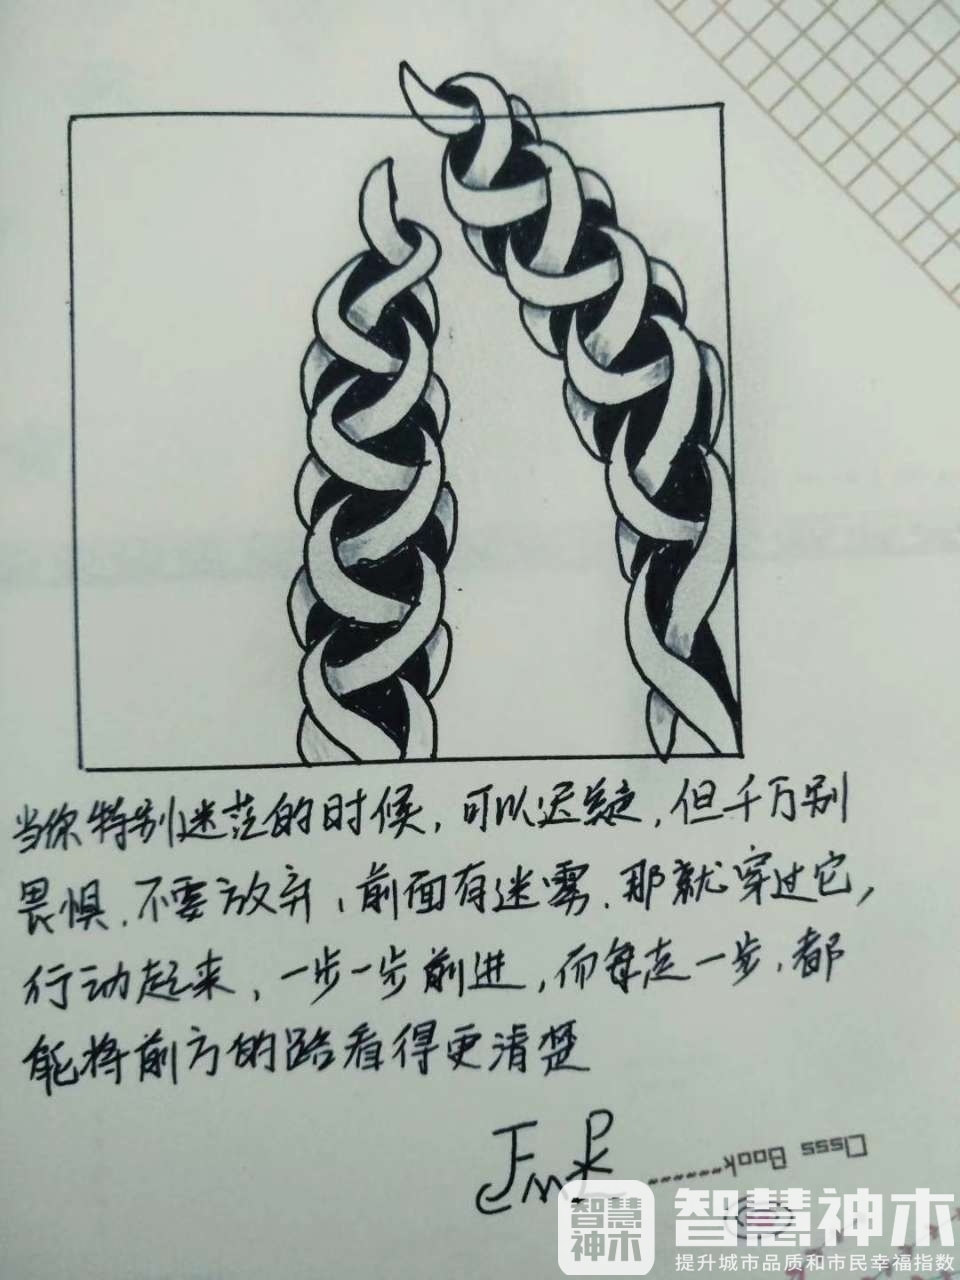 当你特别迷茫的时候，可以迟疑，但千万别
畏惧．不要放弃，前面有迷雾．那就穿过它，
行动起来，一步一步前进，而每走一步，都
能将前方的路看得更清楚
Class Book
智慧神木
智慧神木
提升城市品质和市民幸福指数